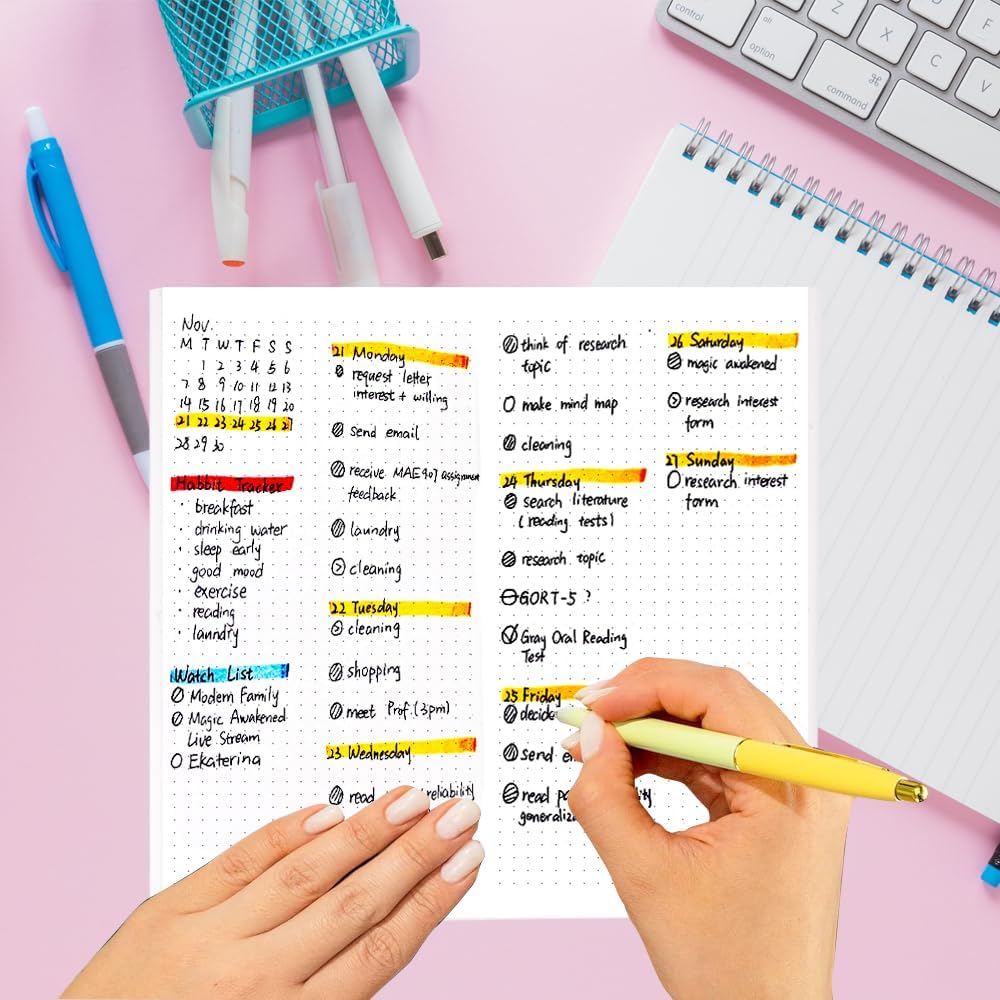 control
alt
option
⌘
command
Z
X
C
V
F
Nov.
M T W T F S S
1 2 3 4 5 6
7 8 9 10 11 12 13
14 15 16 17 18 19 20
21 22 23 24 25 26 27
28 29 30
Habbit Tracker
· breakfast
· drinking water
· sleep early
· good mood
· exercise
· reading
· laundry
Watch List
Modern Family
Magic Awakened
Live Stream
Ekaterina
21 Monday
request letter
interest + willing
send email
receive MAE907 assignment
feedback
laundry
cleaning
22 Tuesday
cleaning
shopping
meet Prof. (3pm)
23 Wednesday
read reliability
think of research
topic
make mind map
cleaning
24 Thursday
search literature
(reading tests)
research topic
GORT-5 ?
Gray Oral Reading
Test
25 Friday
decide
send
read
26 Saturday
magic awakened
research interest
form
27 Sunday
research interest
form